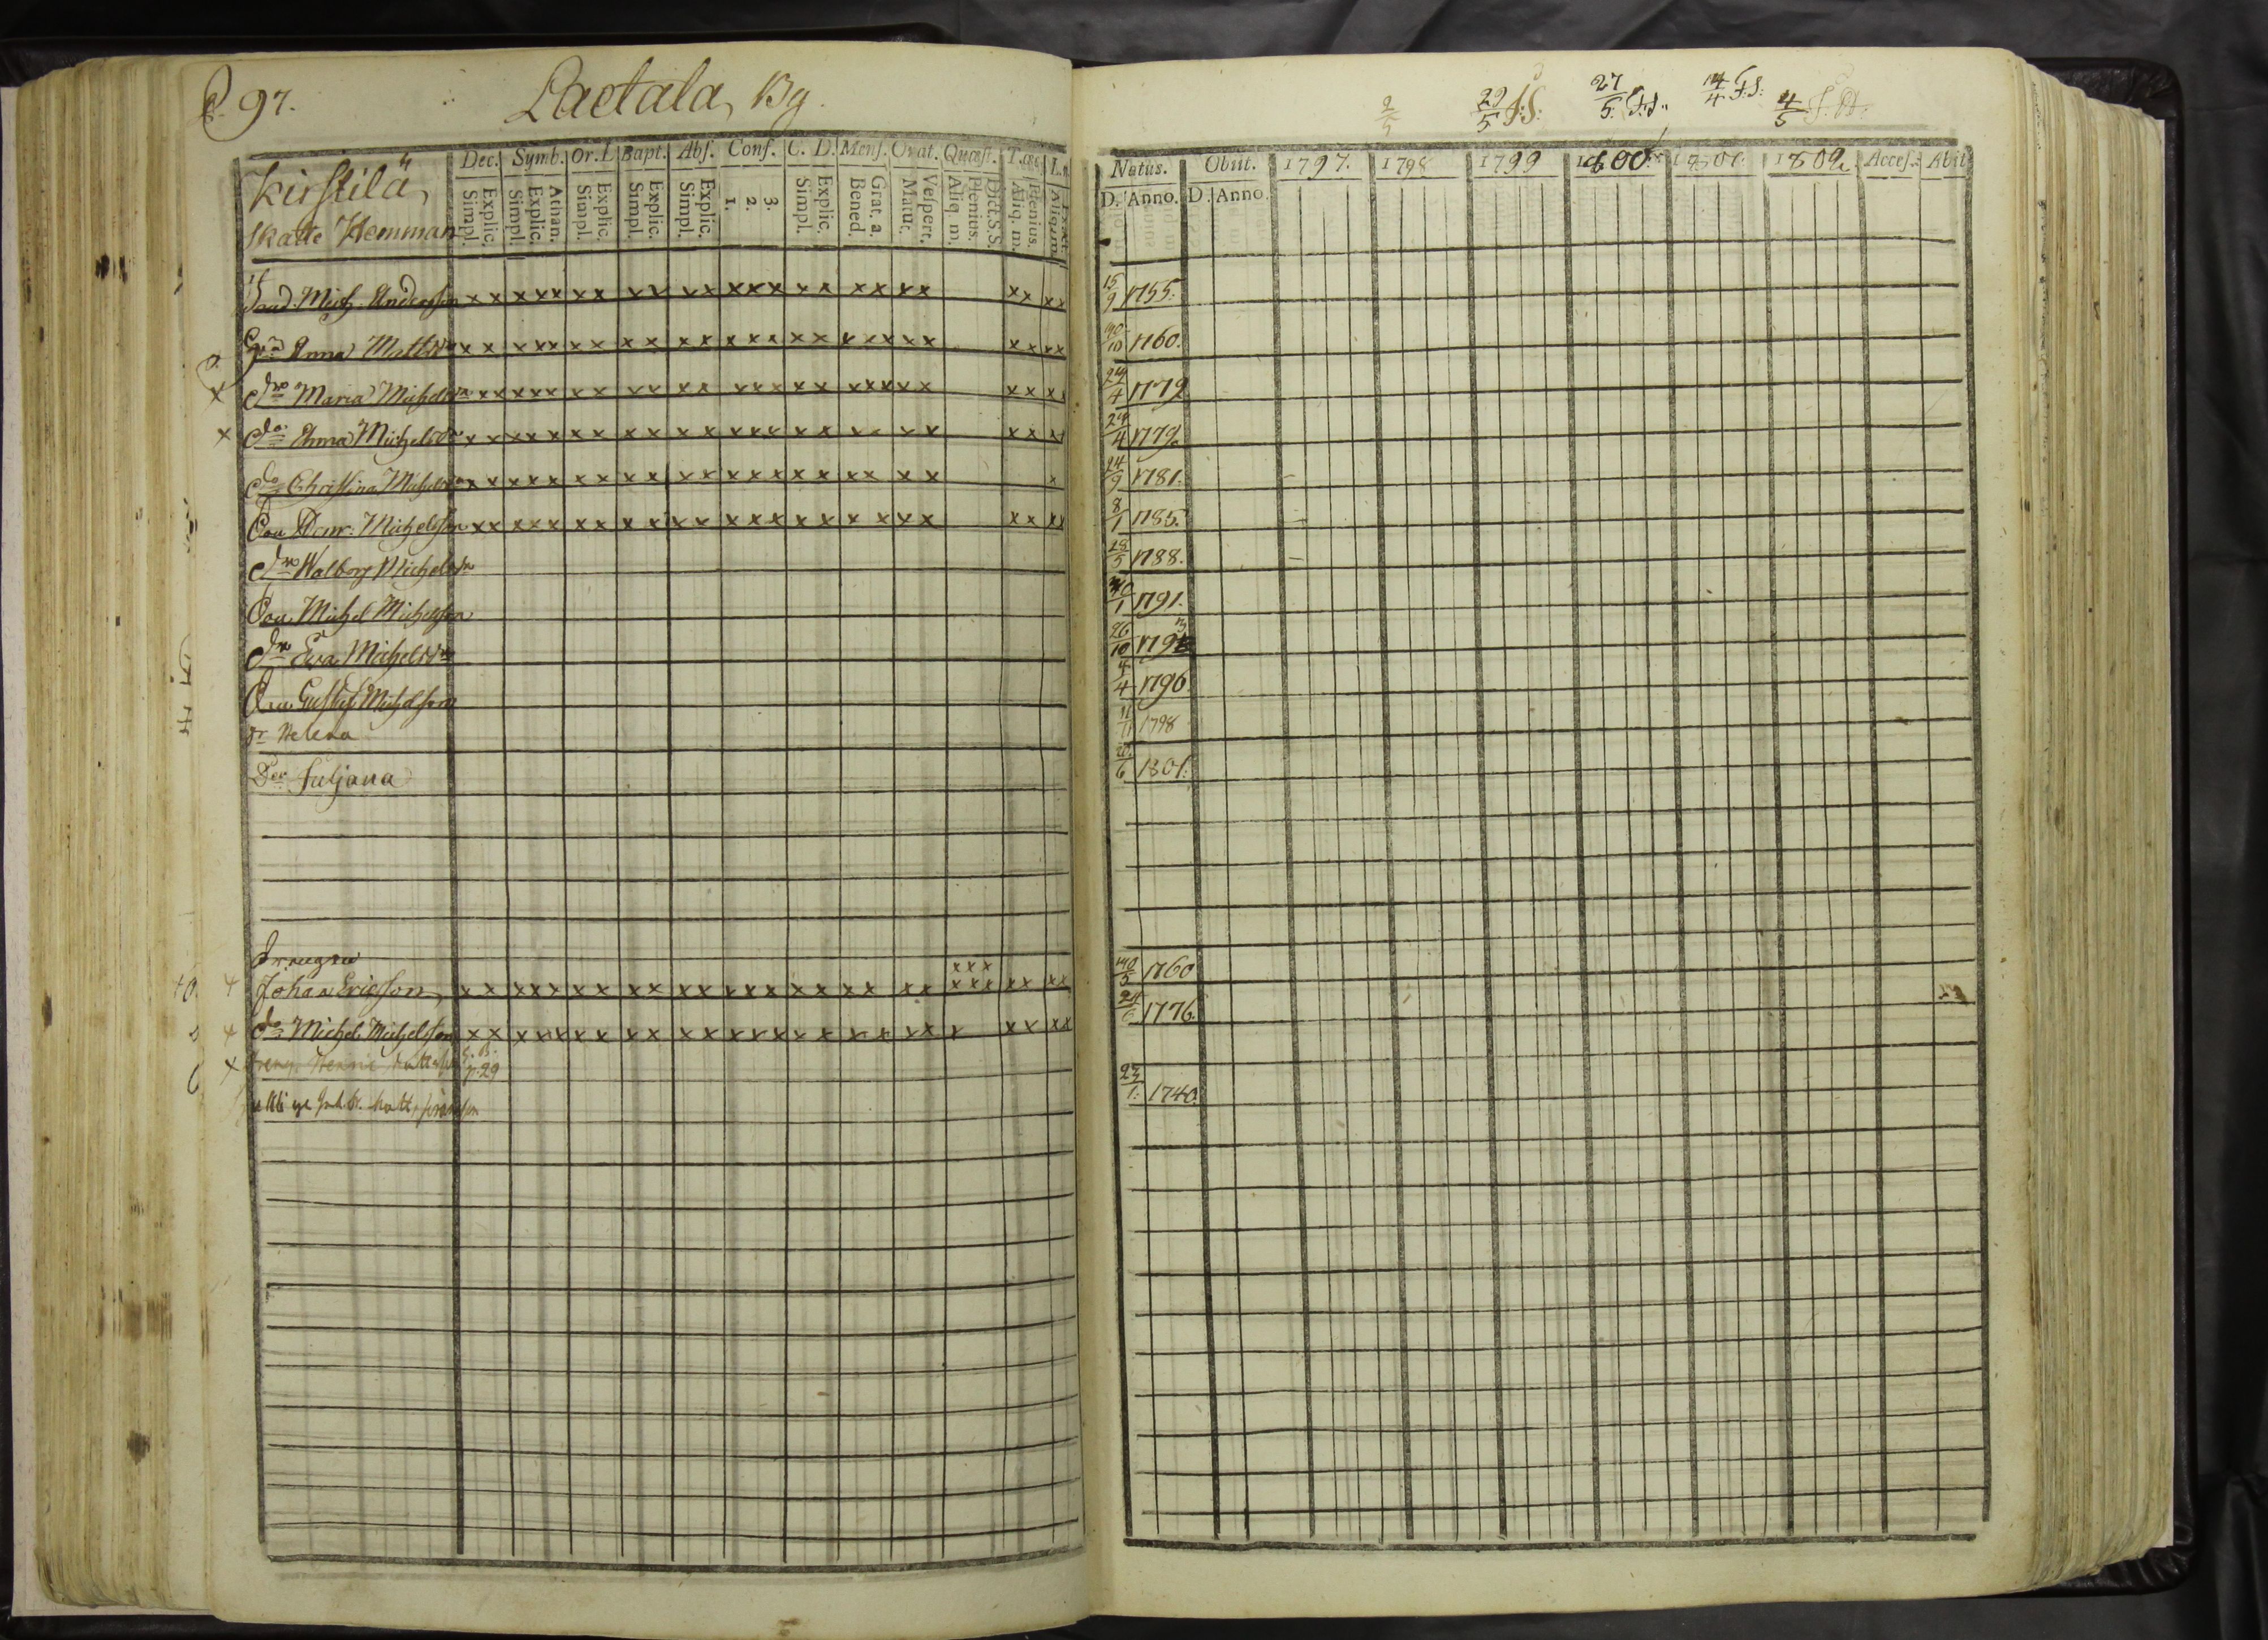 P. 97. Laetala, By.
Kirstilä, Skatte Hemman
Dec. Symb. Or. D. Bapt. Abs. Conf. C. D. Mens. Orat. Quæst. T. L.
Simpl. Explic. Simpl. Explic. Athan. Simpl. Explic. Simpl. Explic. Simpl. Explic. 1. 2. 3. Simpl. Explic. Bened. Grat. a. Matut. Vespert. Aliq. m. Plenius. Dict. S. S. Aliq. m. Plenius. Aliq. m.
Mich. Anderssn x x x x x x x x x x x x x x x x x x x x x x x x
Anna Mattsdr x x x x x x x x x x x x x x x x x x x x x x x x
x Dr Maria Michelsdr x x x x x x x x x x x x x x x x x x x x x x
x do Anna Michelsdr x x x x x x x x x x x x x x x x x x x x x x
do Christina Michelsdr x x x x x x x x x x x x x x x x x x x x x
Son Henr: Michelsson x x x x x x x x x x x x x x x x x x x x x x x x
dr Walborg Michelsdr
Son Michel Michelsson
dr Eva Michelsdr
Son Gustaf Michelsson
dr Helena
Dr Juljana
Drengar
Johan Ericsson, x x x x x x x x x x x x x x x x x x x x x x x x x x x x
do Michel Michelsson x x x x x x x x x x x x x x x x x x x x x x x x x
x Henric p. 29
Matts
2/5 29/5 F.S. 27/5 F.S. 14/4 F.S. 4/5
Natus. Obiit. 1797. 1798 1799 1800. 1801. 1802 Acces. Abit
D. Anno. D. Anno
15/9 1755.
10 1760.
24/4 1779
24/4 1779.
24/9 1781.
8/1 1785.
28/5 1788.
30/1 1791.
26/10 179
4/4 1796.
11/11 1798
20/6 1801.
30/5 1760
24/6 1776.
23/1 1740.